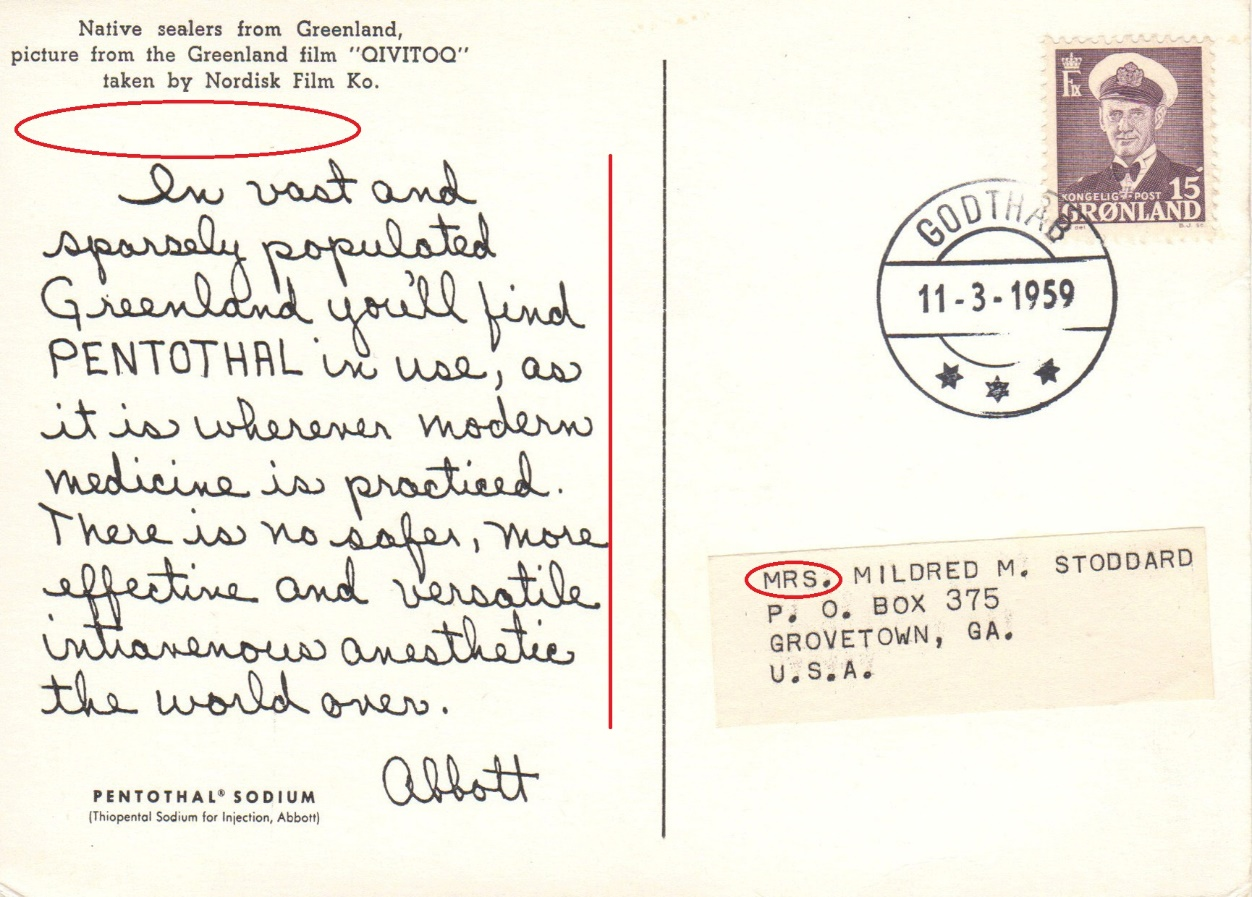 Native sealers from Greenland,
picture from the Greenland film "QIVITOQ"
taken by Nordisk Film Ko.
In vast and
sparsely populated
Greenland you'll find
PENTOTHAL in use, as
it is wherever modern
medicine is practiced.
There is no safer, more
effective and versatile
intravenous anesthetic
the world over.
Abbott
PENTOTHAL® SODIUM
(Thiopental Sodium for Injection, Abbott)
F IX
KONGELIG POST 15
GRØNLAND
GODTHÅB
11-3-1959
MRS. MILDRED M. STODDARD
P. O. BOX 375
GROVETOWN, GA.
U.S.A.